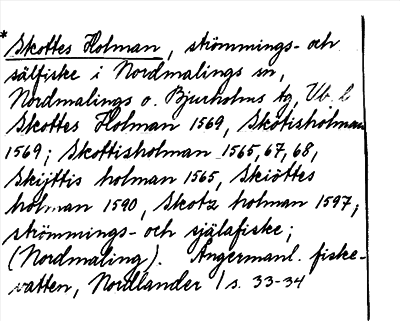 *Skottes Holman, strömmings- och
sälfiske i Nordmalings sn,
Nordmalings o. Bjurholms tg, Vb. l
Skottes Holman 1569, Skotisholman
1569; Skottisholman 1565, 67, 68,
Skijttis holman 1565, Skiöttes
holman 1590, Skotz holman 1597;
strömmings- och själafiske;
(Nordmaling). Ångermanl. fiske-
vatten, Nordlander 1 s. 33-34